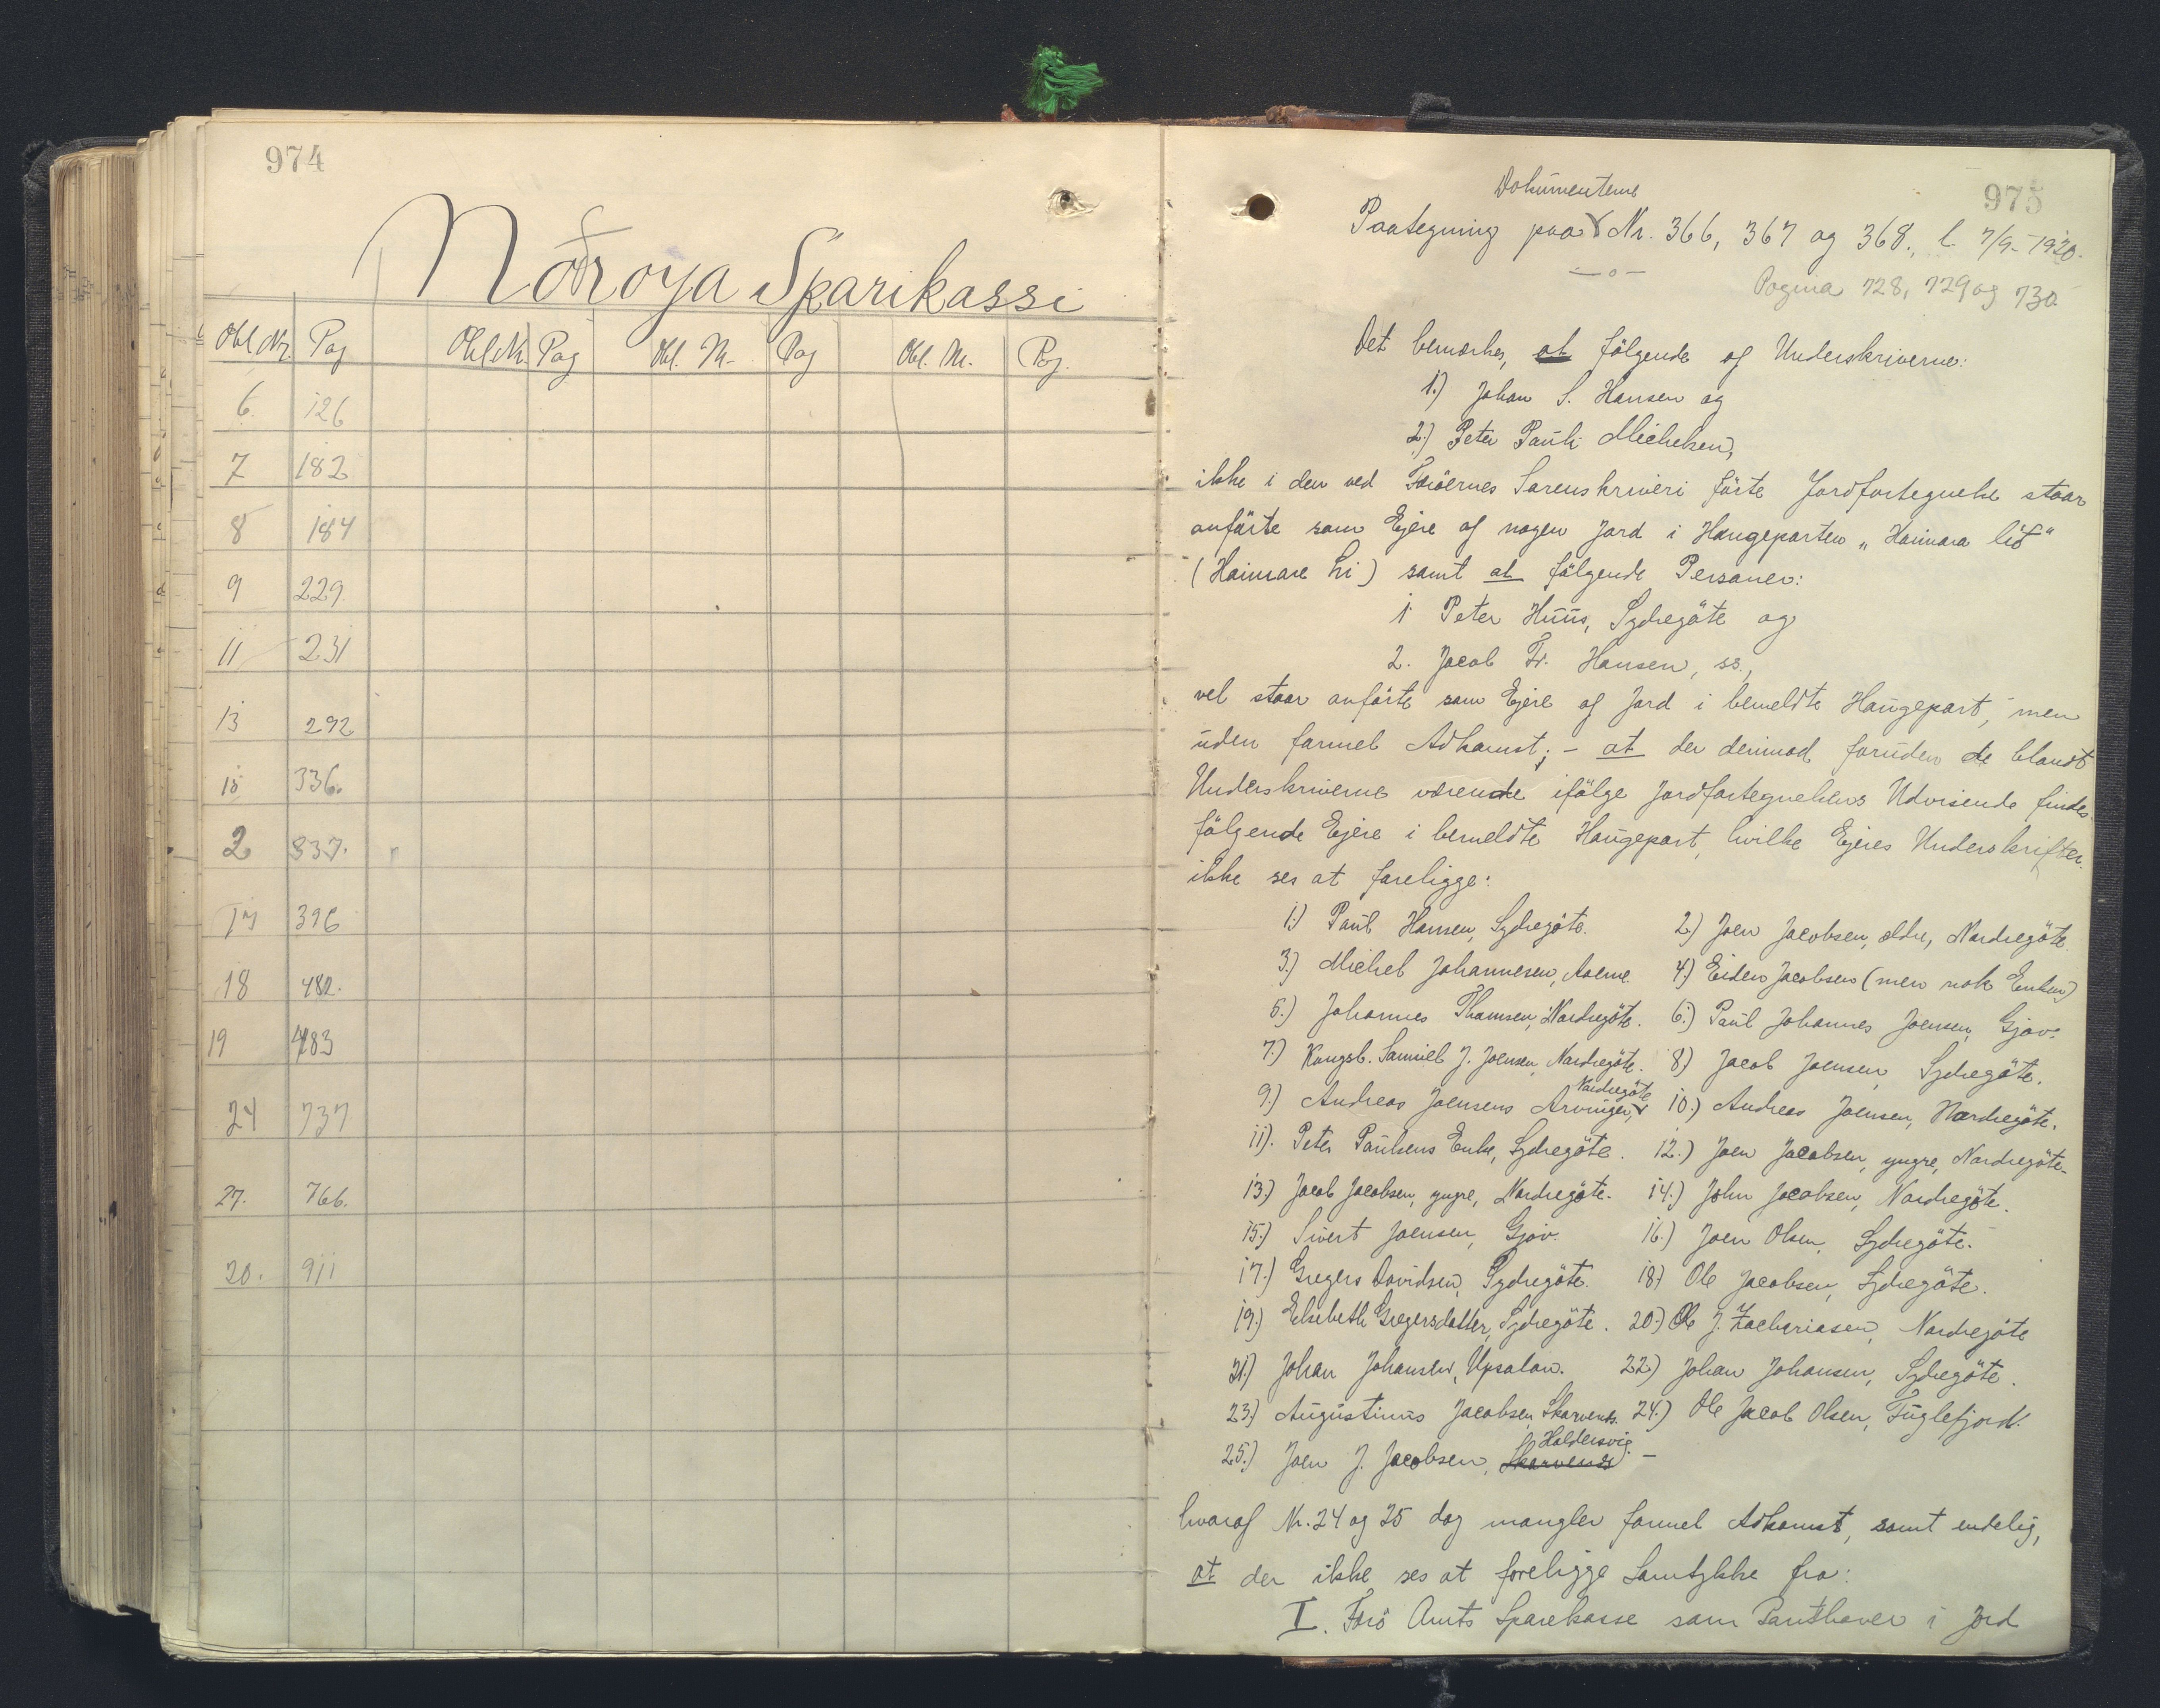 974
Norðoya Sparikassi
Obl. Nr. Pag Obl. Nr. Pag Obl. Nr. Pag Obl. Nr. Pag.
6. 126
7 182
8 184
9 229.
11 231
13 292
15 336.
2 337.
17 396
18 482.
19 483
24 737
27. 766.
20. 911
975
Dokumenterne
Paategning paa Nr. 366, 367 og 368, l. 7/9-1920.
—o—
Pagina 728, 729 og 730
Det bemærkes, at følgende af Underskriverne:
1.) Johan S. Hansen og
2.) Peter Pauli Michelsen,
ikke i den ved Færöernes Sorenskriveri förte Jordfortegnelse staar
anförte som Ejere af nogen Jord i Haugeparten „Heimara lið"
(Haimare Li) samt at fölgende Personer:
1 Peter Huus, Sydregöte og
2. Jacob Fr. Hansen, ss.,
vel staar anförte som Ejere af Jord i bemeldte Haugepart, men
uden formel Adkomst; - at der derimod foruden de blandt
Underskriverne værende ifölge Jordfortegnelsens Udvisende findes
fölgende Ejere i bemeldte Haugepart, hvilke Ejeres Underskrifter
ikke ses at foreligge:
1.) Paul Hansen, Sydregöte. 2.) Joen Jacobsen, ældre, Nordregöte.
3.) Michel Johannesen, 4.) Eiden Jacobsen (men nok Enken)
5.) Johannes Thomsen, Nordregöte. 6.) Paul Johannes Joensen, Gjov.
7.) Kongsb. Samuel J. Joensen, Nordregöte. 8.) Jacob Joensen, Sydregöte.
9.) Andreas Joensens Arvinger, Nordregöte 10.) Andreas Joensen, Nordregöte.
11). Peter Paulsens Enke, Sydregöte. 12.) Joen Jacobsen, yngre, Nordregöte.
13.) Jacob Jacobsen, yngre, Nordregöte. 14.) John Jacobsen, Nordregöte.
15.) Sivert Joensen, Gjov. 16.) Joen Olsen, Sydregöte.
17.) Gregers Davidsen, Sydregöte. 18) Ole Jacobsen, Sydregöte.
19.) Elsebeth Gregersdatter, Sydregöte. 20.) Ole J. Zachariasen, Nordregöte
21.) Johan Johansen, Upsalan. 22.) Johan Johansen, Sydregöte.
23.) Augustinus Jacobsen, Skarvenes. 24.) Ole Jacob Olsen, Fuglefjord.
25.) Joen J. Jacobsen, Skarvenes Haldersvig. —
hvoraf Nr. 24 og 25 dog mangler formel Adkomst, samt endelig,
at der ikke ses at foreligge Samtykke fra:
I. Færö Amts Sparekasse som Panthaver i Jord